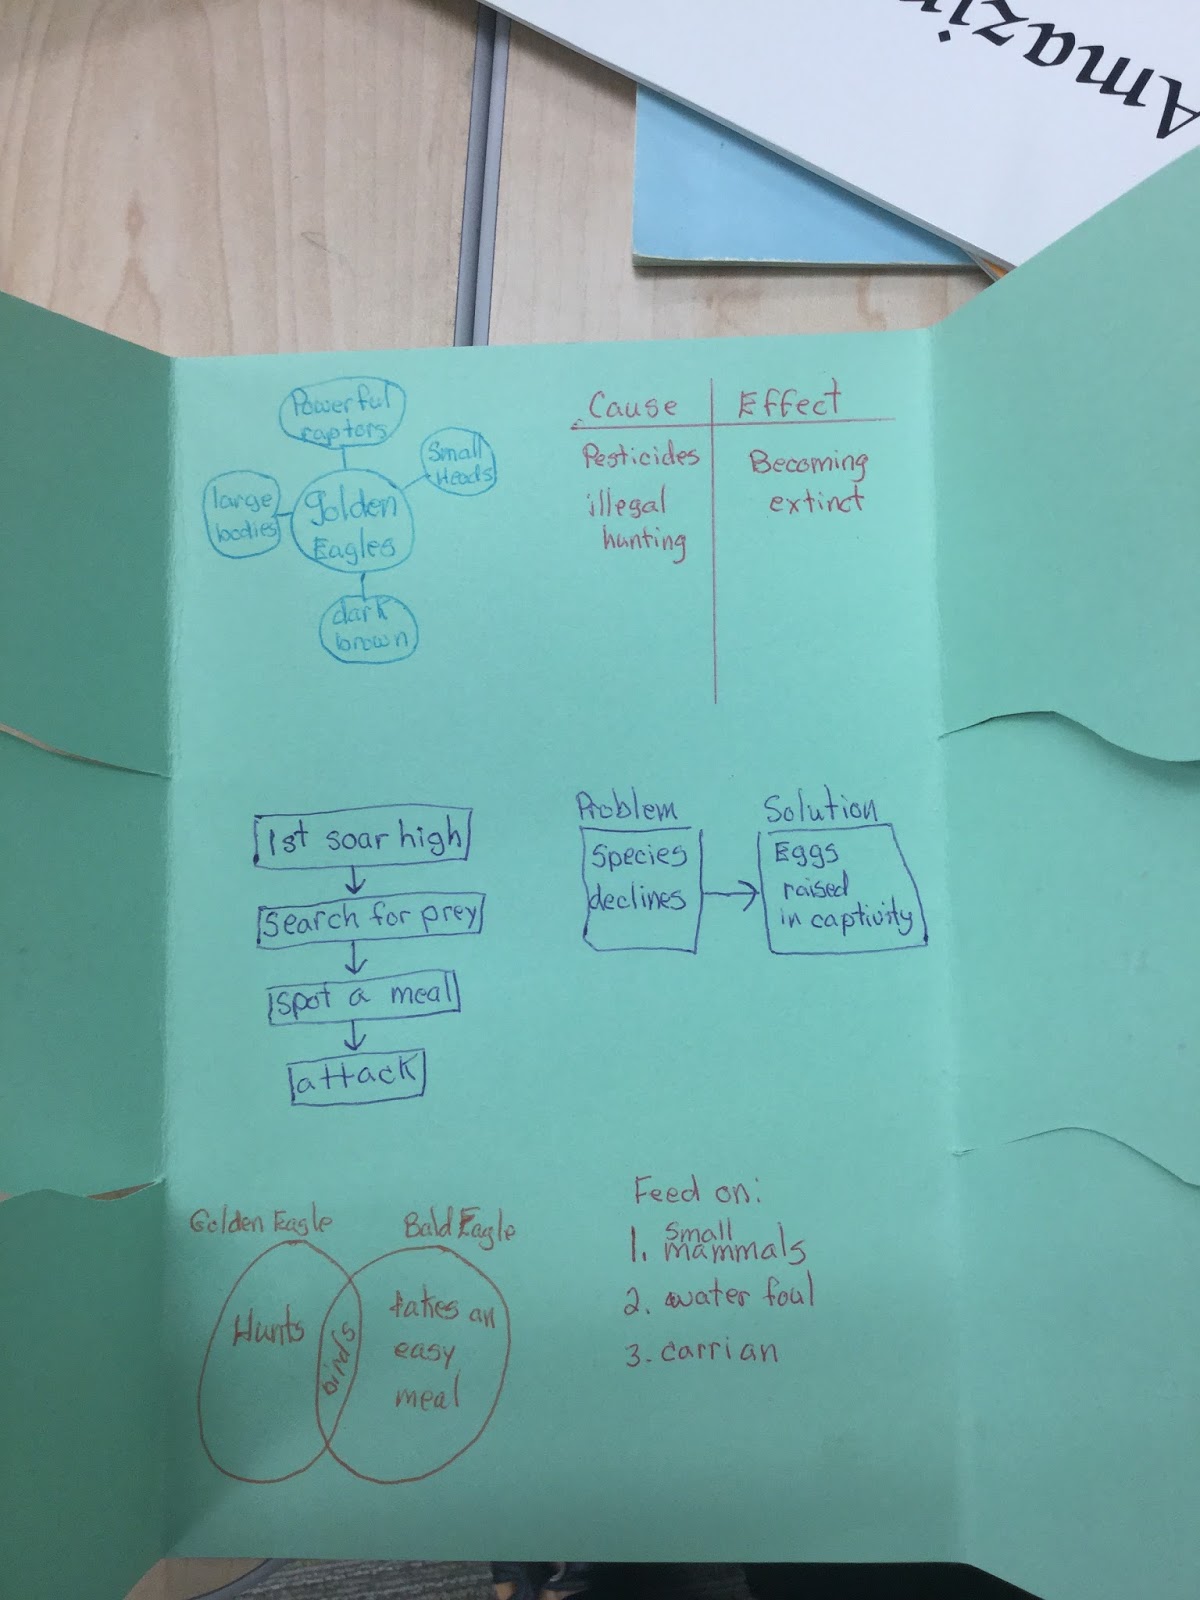 Amazin
Powerful
raptors
Small
Heads
large
bodies
golden
Eagles
dark
brown
Cause
Effect
Pesticides
illegal
hunting
Becoming
extinct
1st soar high
Search for prey
Spot a meal
attack
Problem
Species
declines
Solution
Eggs
raised
in captivity
Golden Eagle
Bald Eagle
Hunts
birds
takes an
easy
meal
Feed on:
1. small
mammals
2. water foul
3. carrian